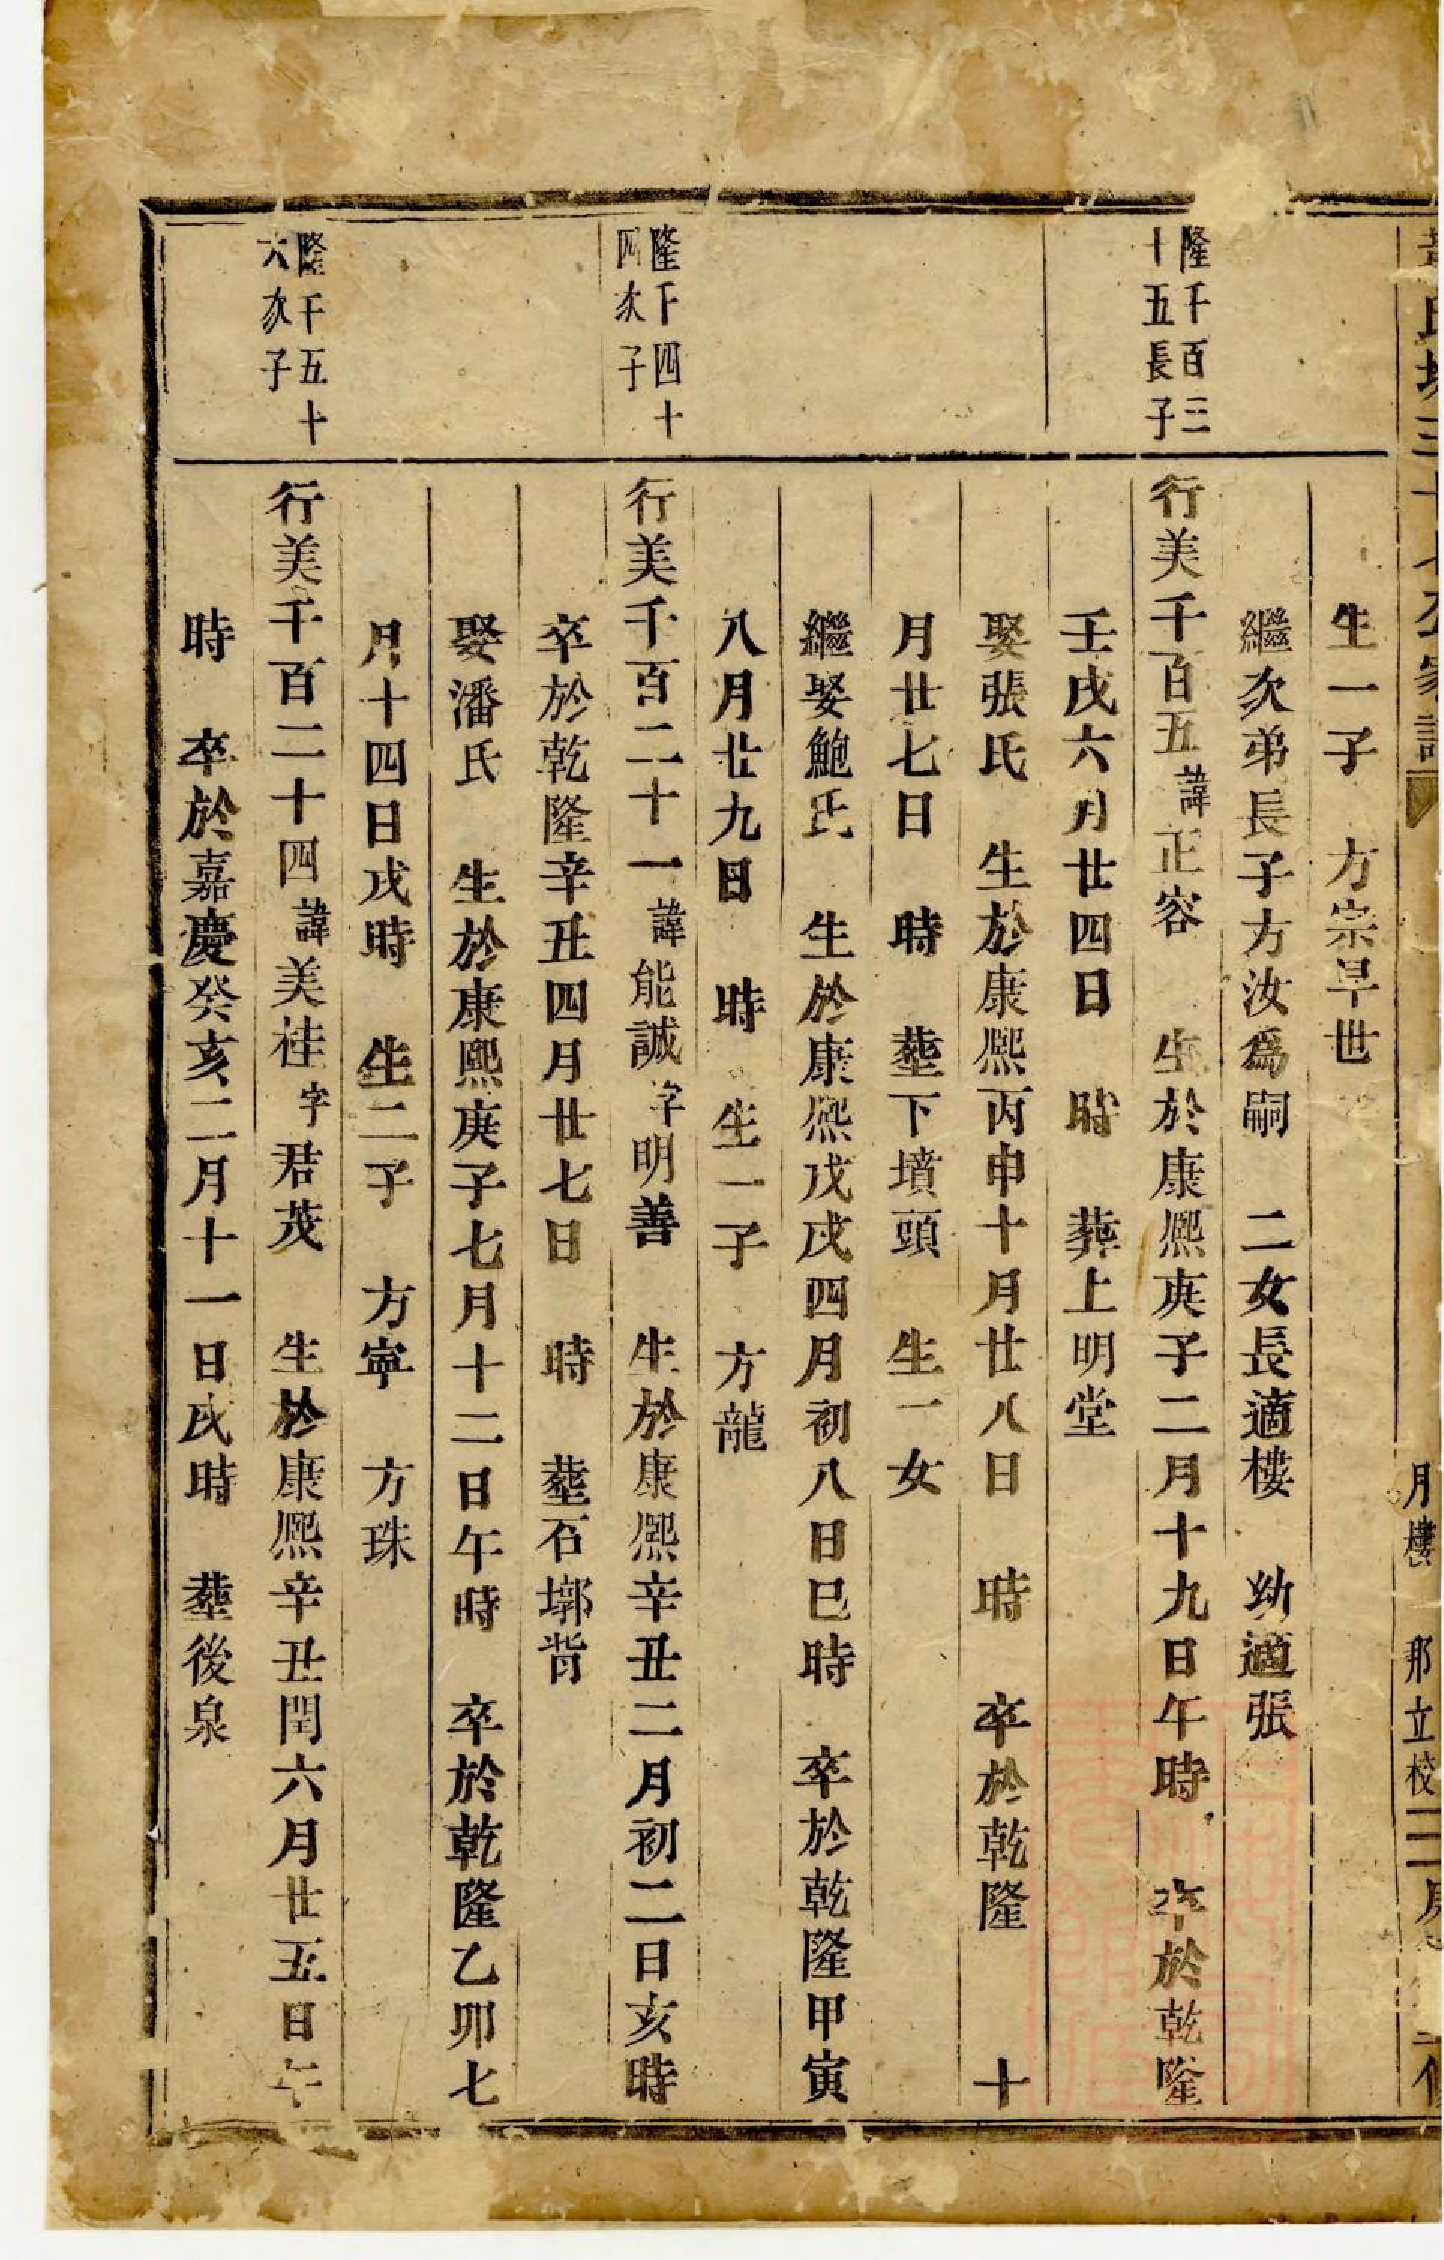 月樓　那立校
生一子　方宗早世
繼次弟長子方汝為嗣　二女長適樓　幼適張
隆千百三
十五長子
行美千百五諱正容　生於康熙庚子二月十九日午時　卒於乾隆
壬戌六月廿四日　時　葬上明堂
娶張氏　生於康熙丙申十月廿八日　時　卒於乾隆　十
月廿七日　時　塟下墳頭　生一女
繼娶鮑氏　生於康熙戊戌四月初八日巳時　卒於乾隆甲寅
八月廿九日　時　生一子　方龍
隆千四十
四次子
行美千百二十一諱能誠字明善　生於康熙辛丑二月初二日亥時
卒於乾隆辛丑四月廿七日　時　塟石墎背
娶潘氏　生於康熙庚子七月十二日午時　卒於乾隆乙卯七
月十四日戌時　生二子　方寧　方珠
隆千五十
六次子
行美千百二十四諱美桂字君茂　生於康熙辛丑閏六月廿五日午
時　卒於嘉慶癸亥二月十一日戌時　塟後泉